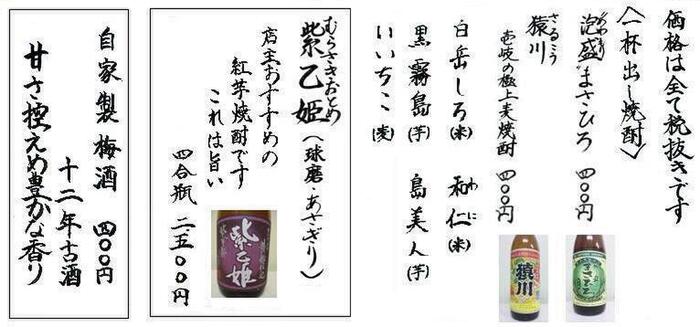 価格は全て税抜きです
〈一杯出し焼酎〉
泡盛まさひろ 四〇〇円
あわもり
猿川 四〇〇円
さるこう
壱岐の極上麦焼酎
白岳しろ(米) 和仁(米)
わに
黒霧島(芋) 島美人(芋)
いいちこ(麦)
紫乙姫(球磨・あさぎり)
むらさきおとめ
店主おすすめの
紅芋焼酎です
これは旨い
四合瓶 二、五〇〇円
紫乙姫
猿川
自家製梅酒 四〇〇円
十二年古酒
甘さ控えめ豊かな香り